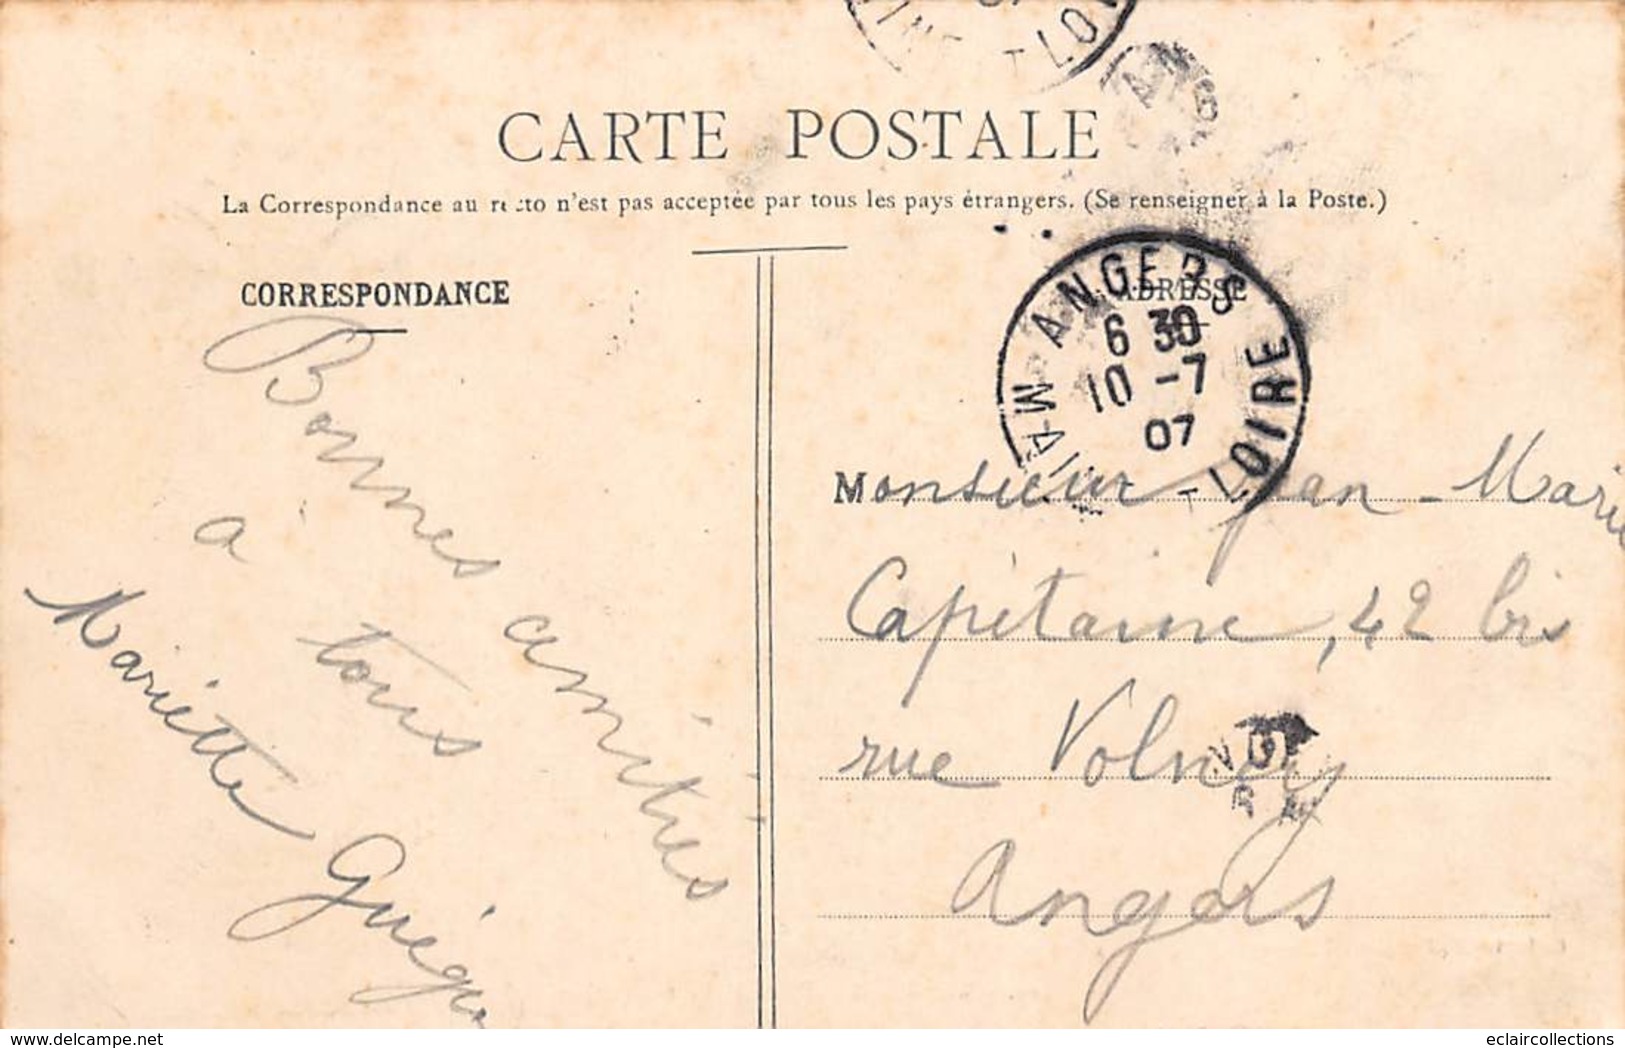 CARTE POSTALE
La Correspondance au recto n'est pas acceptée par tous les pays étrangers. (Se renseigner à la Poste.)
CORRESPONDANCE
Bonnes amitiés
a tous
Mariette
ADRESSE
ANGERS
6 30
10 -7
07
MAINE - LOIRE
Monsieur Jean-Marie
Capitaine, 42 bis
rue Volney
Angers
delcampe.net
eclaircollections